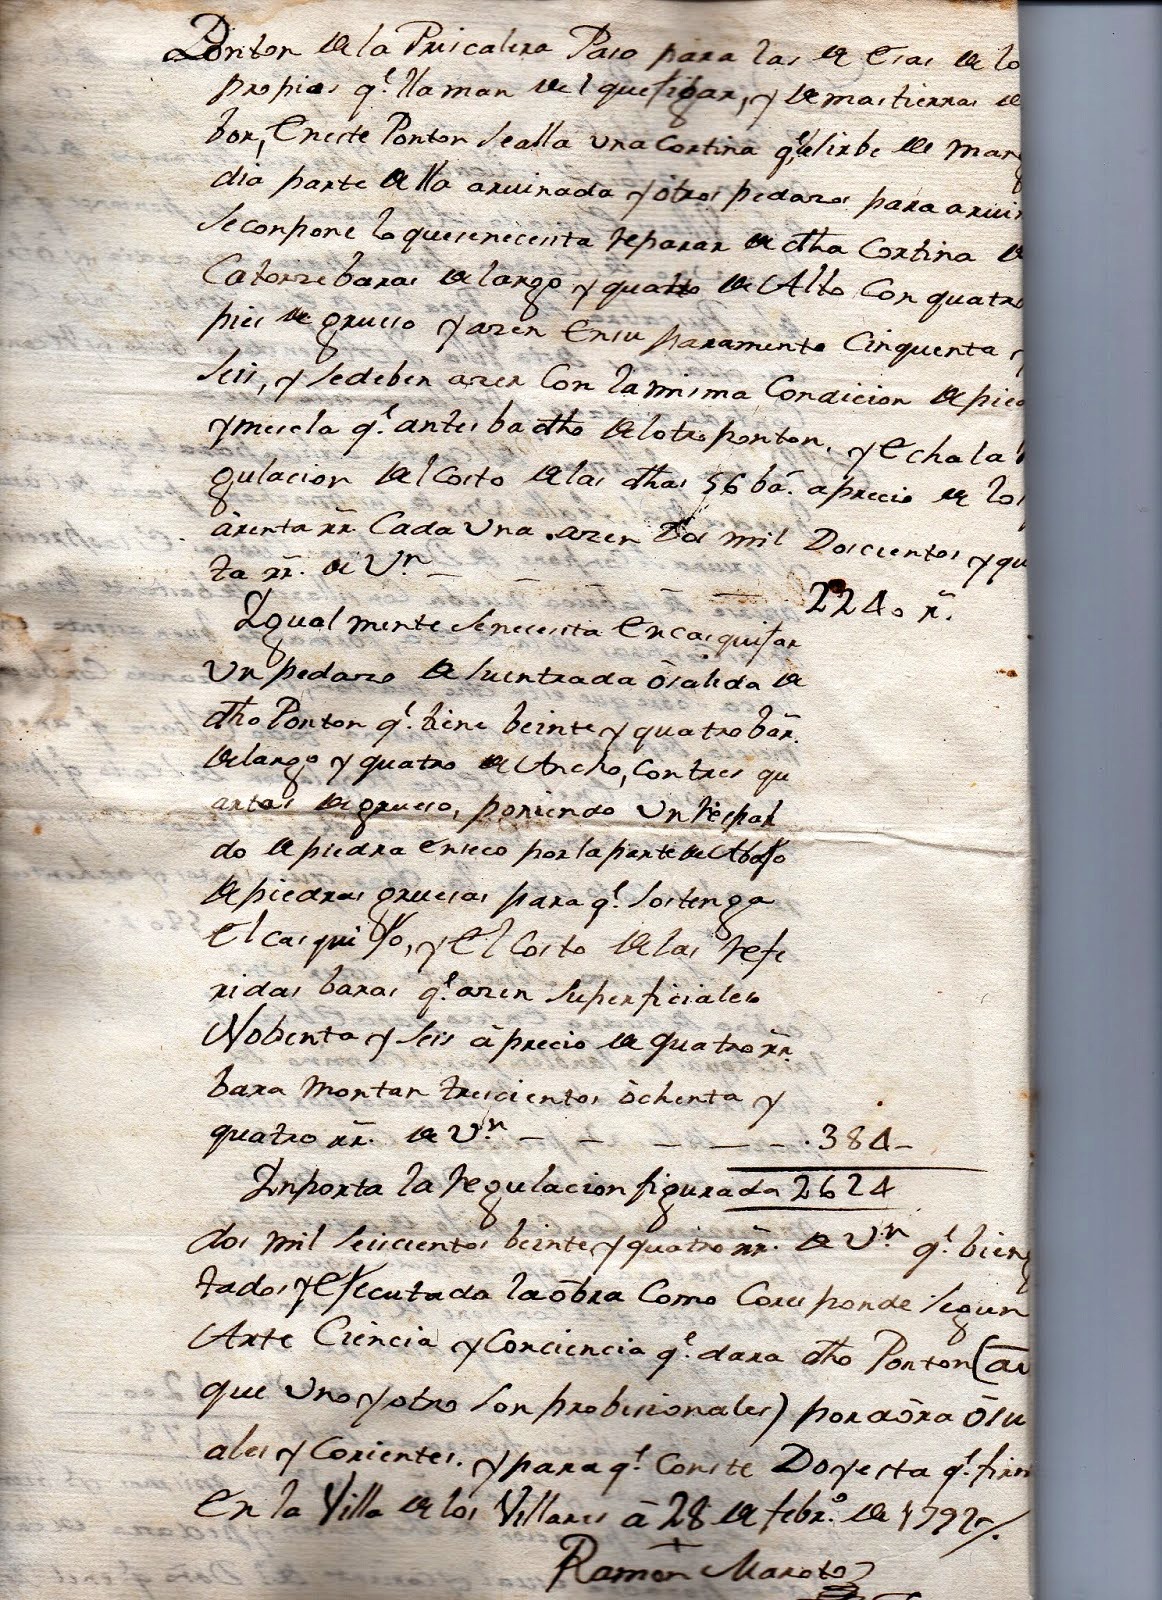 Ponton de la Pricalera Paso para las de Esas de lo
propios q.e llaman del quexigar, y demas tierras de
bor, En este Ponton se alla una Cortina q.e sirbe de mar
dia parte de lla aruinada y otros pedazos para aruin
se conpone lo que se necesita reparar de dha Cortina de
Catorze baras de largo y quatro de Alto Con quatro
pies de grueso y azen En su paramento Cinquenta y
seis, y se deben azer Con la misma Condicion de pied
y mescla q.e antes ba dho del otro ponton, y Echa la
gulacion del Costo de las dhas 56 bà. a precio de los
arenta rr. Cada Una azen Dos mil Doscientos y qu
ta rr. de V.n — — — — 2240 r.
Igual mente se necesita Encasquijar
Un pedazo de su entrada ò salida de
dho Ponton q.e tiene beinte y quatro bar.
de largo y quatro de Ancho, con tres qu
artas de grueso, poniendo Un respal
do de piedra en seco por la parte de Abaxo
de piedras gruesas para q.e sostenga
El casquixo, y El Costo de las refe
ridas baras q.e azen superficiales
Nobenta y seis à precio de quatro rr.
bara montan trescientos òchenta y
quatro rr. de V.n — — — — — . 384 –
Inporta la regulacion figurada 2624
dos mil seiscientos beinte y quatro rr. de V.n q.e bien
tados y Executada la òbra Como Corresponde segun
Arte Ciencia y Conciencia q.e dara dho Ponton (au
que Uno y otro son probisionales) por aòra ò su
ales y Corientes. y para q.e Conste Doy esta q.e firm
En la Villa de los Villares à 28 de febr.o de 1792
Ramon Maroto